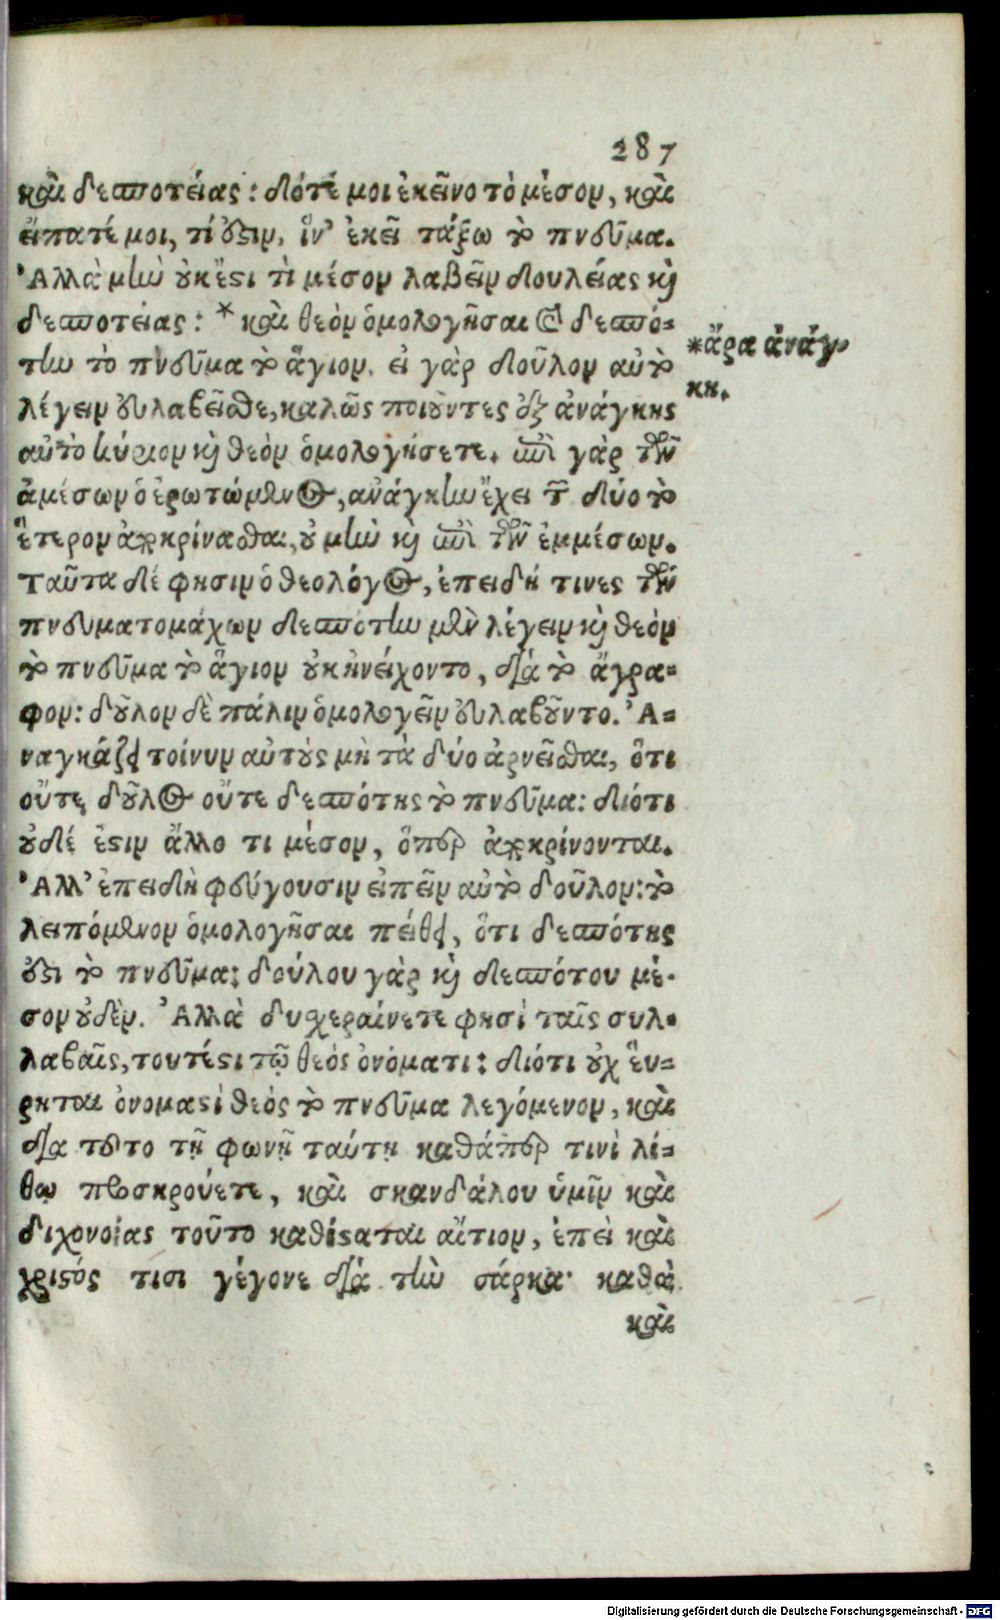 287
καὶ δεσποτείας: δότέ μοι ἐκεῖνο τὸ μέσον, καὶ
εἴπατέ μοι, τί ὅξιν, ἵν' ἐκεῖ τάξω τὸ πνεῦμα.
Ἀλλὰ μὴν οὐκ ἔστι τὶ μέσον λαβεῖν δουλείας καὶ
δεσποτείας: * καὶ θεὸν ὁμολογῆσαι καὶ δεσπό-
την τὸ πνεῦμα τὸ ἅγιον. εἰ γὰρ δοῦλον αὐτὸ
*ἄρα ἀνάγ-
κη.
λέγειν εὐλαβεῖσθε, καλῶς ποιοῦντες ἐξ ἀνάγκης
αὐτὸ κύριον καὶ θεὸν ὁμολογήσετε. ἐπὶ γὰρ τῶν
ἀμέσων ὁ ἐρωτώμενος, ἀνάγκην ἔχει τῶν δύο τὸ
ἕτερον ἀποκρίνασθαι, οὐ μὴν καὶ ἐπὶ τῶν ἐμμέσων.
Ταῦτα δέ φησιν ὁ θεολόγος, ἐπειδή τινες τῶν
πνευματομάχων δεσπότην μὲν λέγειν καὶ θεὸν
τὸ πνεῦμα τὸ ἅγιον οὐκ ἠνείχοντο, διὰ τὸ ἄγρα-
φον: δοῦλον δὲ πάλιν ὁμολογεῖν εὐλαβοῦντο. Ἀ-
ναγκάζει τοίνυν αὐτοὺς μὴ τὰ δύο ἀρνεῖσθαι, ὅτι
οὔτε δοῦλος οὔτε δεσπότης τὸ πνεῦμα: διότι
οὐδέ ἐστιν ἄλλο τι μέσον, ὅπερ ἀποκρίνονται.
Ἀλλ' ἐπειδὴ φεύγουσιν εἰπεῖν αὐτὸ δοῦλον: τὸ
λειπόμενον ὁμολογῆσαι πείθει, ὅτι δεσπότης
ἐστὶ τὸ πνεῦμα: δούλου γὰρ καὶ δεσπότου μέ-
σον οὐδέν. Ἀλλὰ δυσχεραίνετε φησὶ ταῖς συλ-
λαβαῖς, τουτέστι τῷ θεὸς ὀνόματι: διότι οὐχ εὕ-
ρηται ὀνομαστὶ θεὸς τὸ πνεῦμα λεγόμενον, καὶ
διὰ τοῦτο τῇ φωνῇ ταύτῃ καθάπερ τινὶ λί-
θῳ προσκρούετε, καὶ σκανδάλου ὑμῖν καὶ
διχονοίας τοῦτο καθίσταται αἴτιον, ἐπεὶ καὶ
χριστός τισι γέγονε διὰ τὴν σάρκα· καθὰ
καὶ
Digitalisierung gefördert durch die Deutsche Forschungsgemeinschaft - DFG